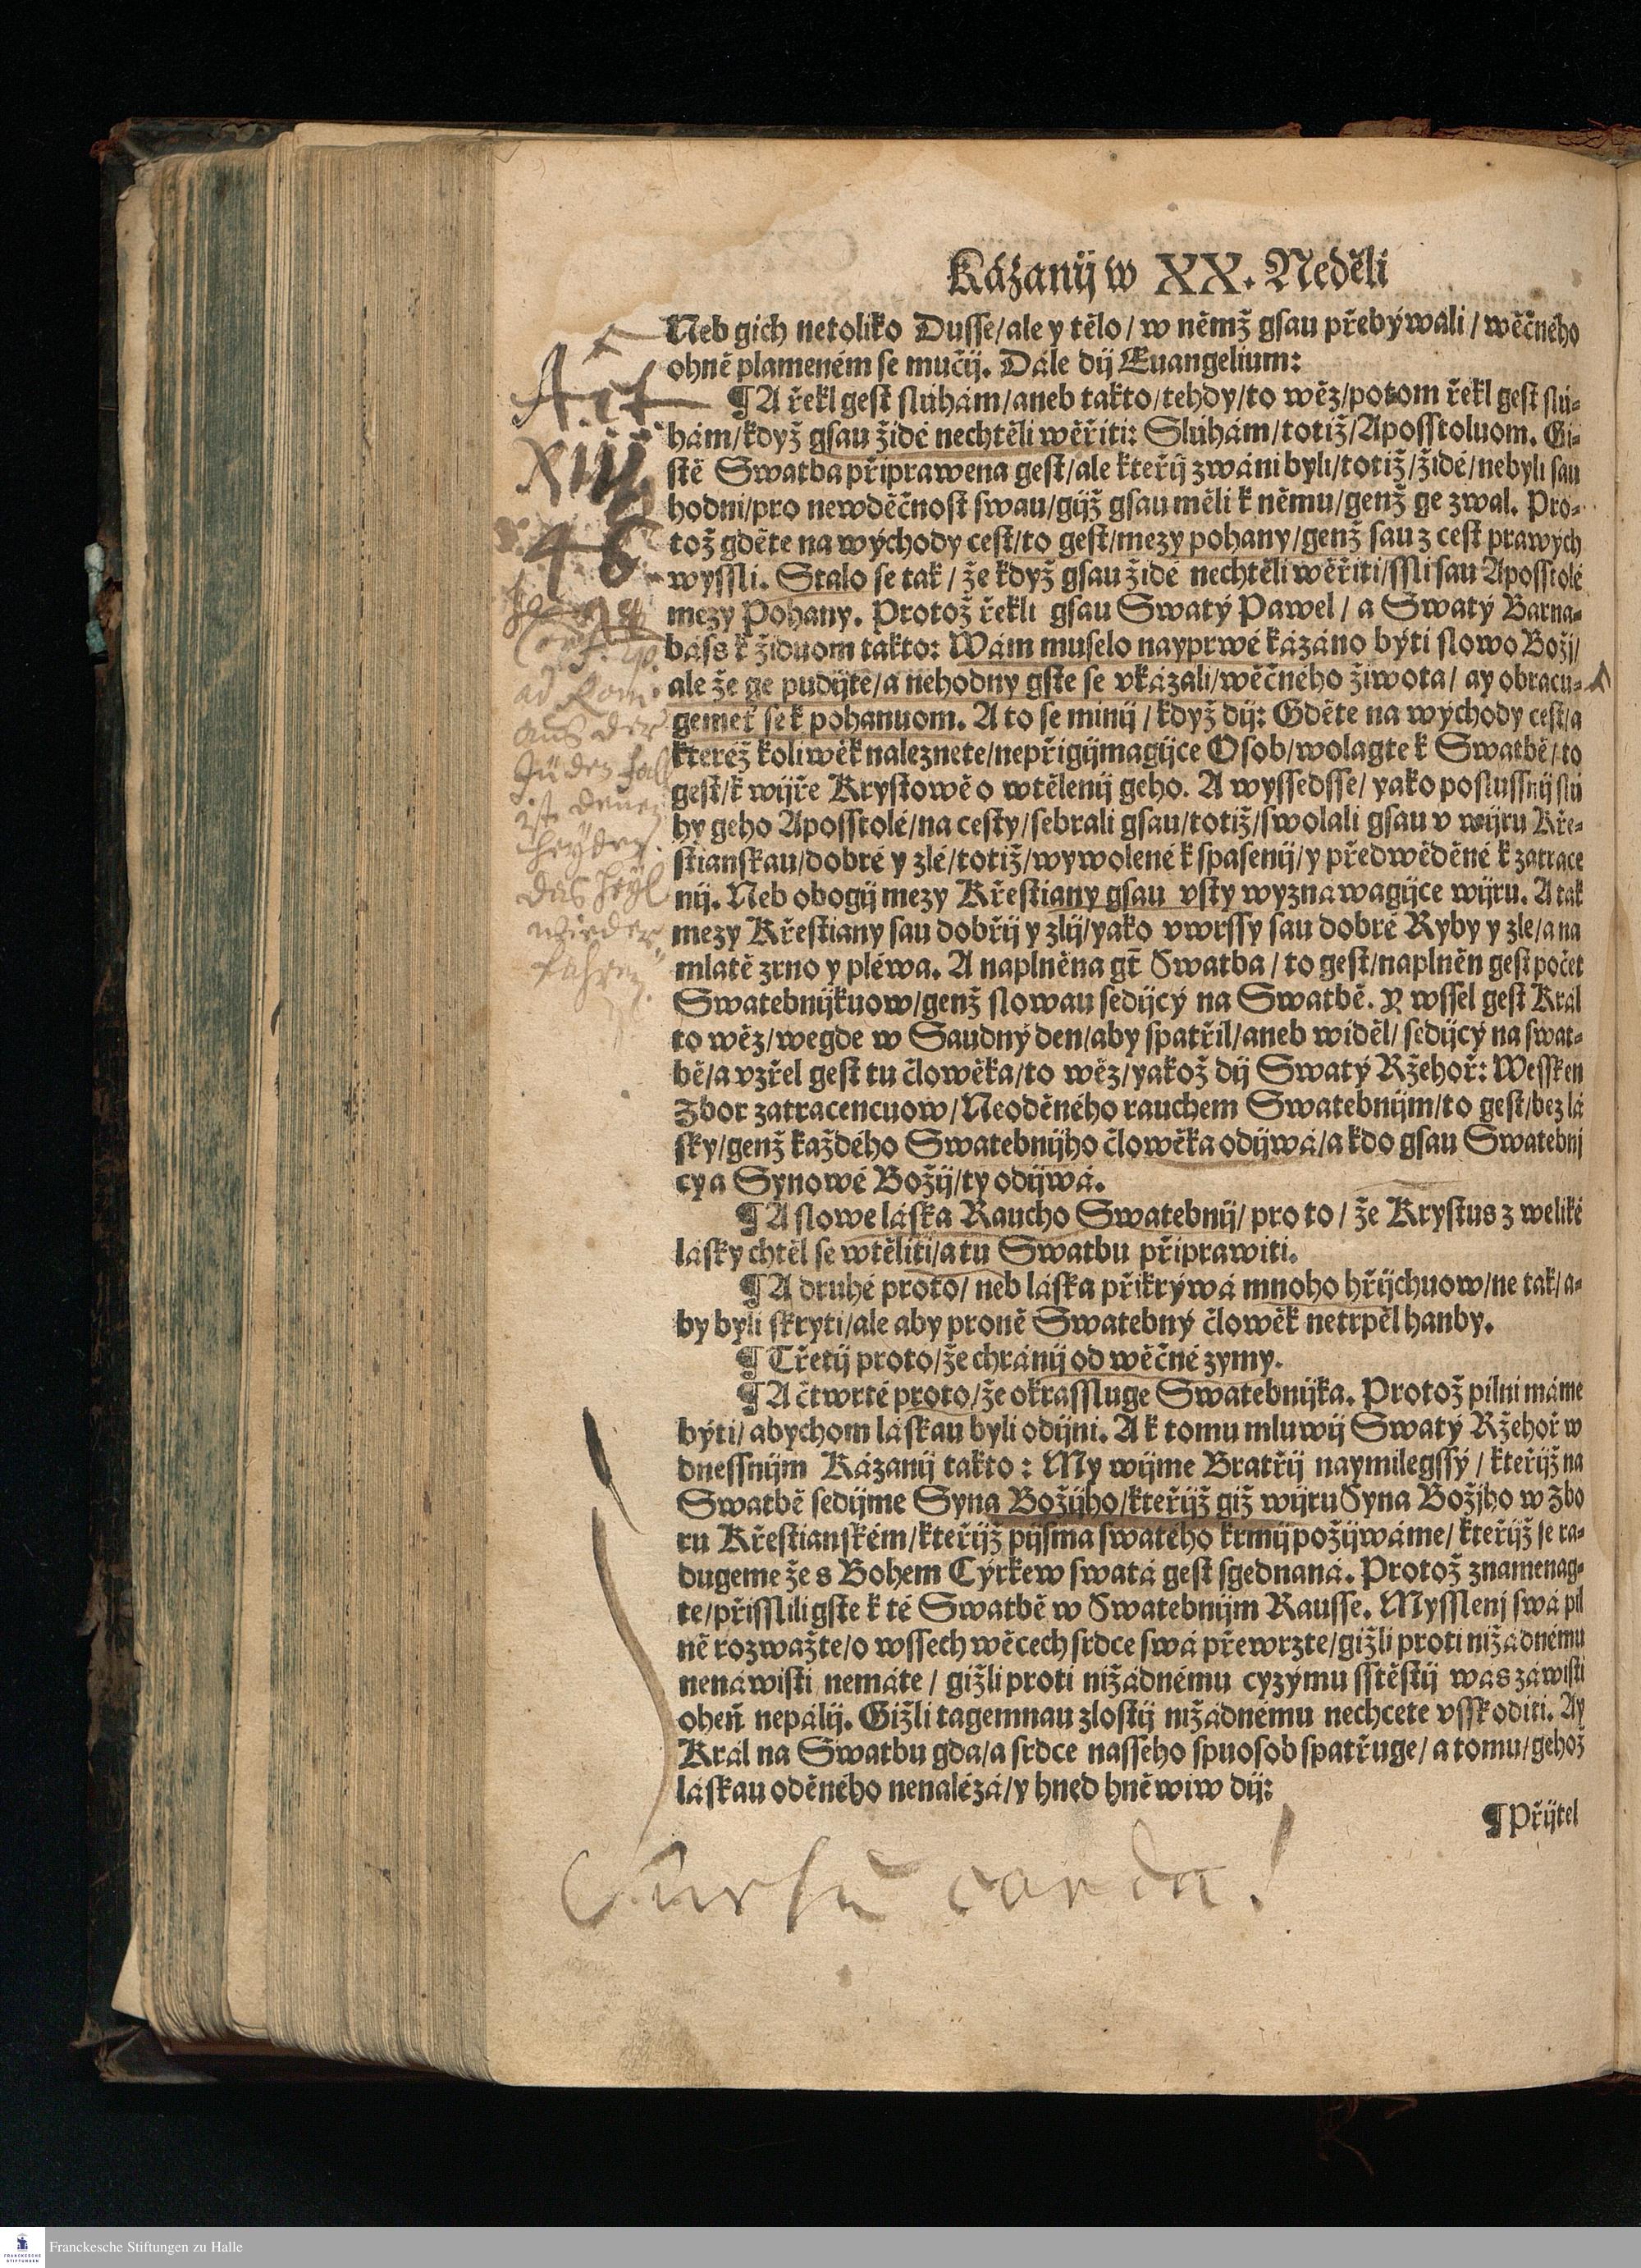 Kázanij w XX. Neděli
Neb gich netoliko Dusse/ale y tělo/w němž gsau přebýwali/wěčného
ohně plameném se mučij. Dále dij Euangelium:
¶ A řekl gest slúhám/aneb takto/tehdy/to wěz/potom řekl gest slú-
hám/když gsau židé nechtěli wěřiti: Slúhám/totiž/Aposstoluom. Gi-
stě Swatba připrawena gest/ale kteřij zwáni byli/totiž/židé/nebyli sau
hodni/pro newděčnost swau/gijž gsau měli k němu/genž ge zwal. Pro-
tož gděte na wýchody cest/to gest/mezy pohany/genž sau z cest prawých
wyssli. Stalo se tak/že když gsau židé nechtěli wěřiti/ssli sau Aposstolé
mezy Pohany. Protož řekli gsau Swatý Pawel/a Swatý Barna-
báss k židuom takto: Wám muselo nayprwé kázáno býti slowo Božj/
ale že ge pudijte/a nehodny gste se vkázali/wěčného žiwota/ay obracu-
gemeť se k pohanuom. A to se mínij/když dij: Gděte na wýchody cest/a
kteréž koliwěk naleznete/nepřigijmagijce Osob/wolagte k Swatbě/to
gest/k wijře Krystowě o wtělenij geho. A wyssedsse/yako poslussnij slú
hy geho Aposstolé/na cesty/sebrali gsau/totiž/swolali gsau v wijru Kře-
stianskau/dobré y zlé/totiž/wywolené k spasenij/y předwěděné k zatrace
nij. Neb obogij mezy Křestiany gsau vsty wyznawagijce wijru. A tak
mezy Křestiany sau dobřij y zlij/yako vwrssy sau dobré Ryby y zle/a na
mlatě zrno y pléwa. A naplněna gt Swatba/to gest/naplněn gest počet
Swatebnijkuow/genž slowau sedijcý na Swatbě. Y wssel gest Král
to wěz/wegde w Saudný den/aby spatřil/aneb widěl/sedijcý na swat-
bě/a vzřel gest tu člowěka/to wěz/yakož dij Swatý Ržehoř: Wessken
Zbor zatracencuow/Neoděného rauchem Swatebnijm/to gest/bez lá
sky/genž každého Swatebnijho člowěka odijwá/a kdo gsau Swatebnj
cy a Synowé Božij/ty odijwá.
¶ A slowe láska Raucho Swatebnij/pro to/že Krystus z weliké
lásky chtěl se wtěliti/a tu Swatbu připrawiti.
¶ A druhé proto/neb láska přikrýwá mnoho hřijchuow/ne tak/a-
by byli skryti/ale aby proně Swatebný člowěk netrpěl hanby.
¶ Třetij proto/že chránij od wěčné zymy.
¶ A čtwrté proto/že okrassluge Swatebnijka. Protož pilni máme
býti/abychom láskau byli odijni. A k tomu mluwij Swatý Ržehoř w
dnessnijm Kázanij takto: My wijme Bratřij naymilegssý/kteřijž na
Swatbě sedijme Syna Božijho/kteřijž giž wijru Syna Božjho w Zbo
ru Křestianském/kteřijž pijsma swatého krmij požijwáme/kteřijž se ra-
dugeme že s Bohem Cýrkew swatá gest sgednaná. Protož znamenag-
te/přissliligste k té Swatbě w Swatebnijm Rausse. Mysslenj swá pil
ně rozwažte/o wssech wěcech srdce swá přewrzte/gižli proti nižádnému
nenáwisti nemáte/gižli proti nižádnému cyzýmu sstěstij was záwisti
oheň nepálij. Gižli tagemnau zlostij nižádnému nechcete vsskoditi. Ay
Král na Swatbu gda/a srdce nasseho spuosob spatřuge/a tomu/gehož
láskau oděného nenalézá/y hned hněwiw dij:
¶ Přijtel
Act
XIII
46
ad Rom.
aus der
Jüden fall
ist denen
Heyden
das Heyl
wieder
fahren.
Sursũ corda!
Franckesche Stiftungen zu Halle